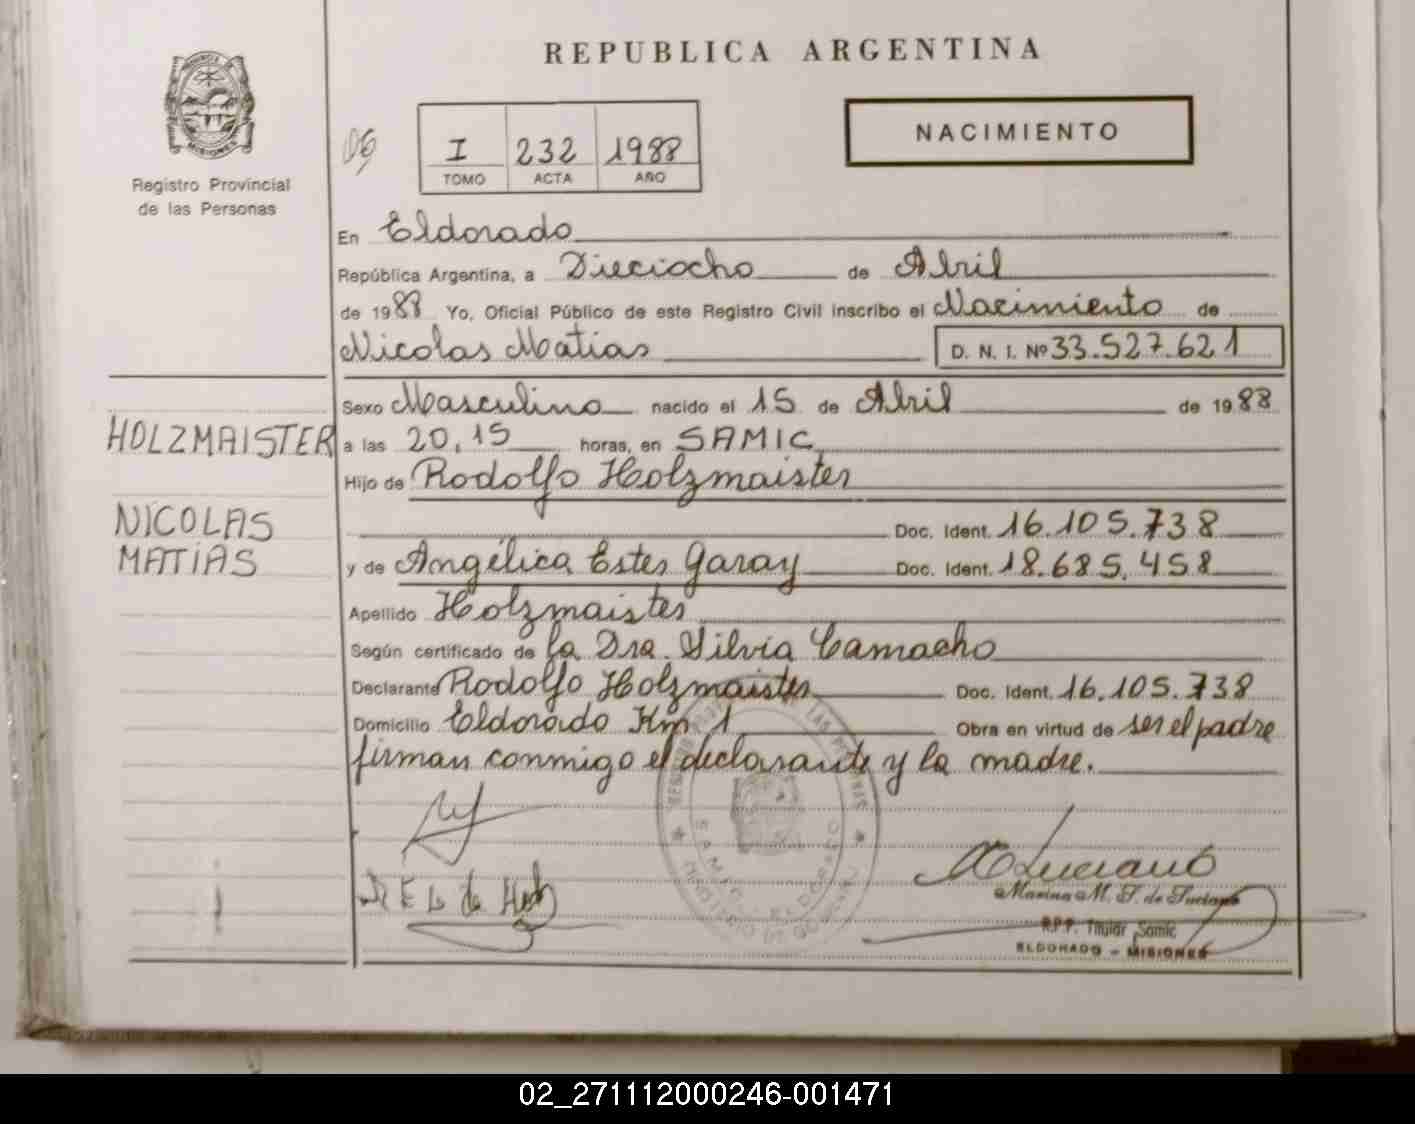 REPUBLICA ARGENTINA
NACIMIENTO
PROVINCIA DE MISIONES
Registro Provincial
de las Personas
I 232 1988
TOMO ACTA AÑO
En Eldorado
República Argentina, a Dieciocho de Abril
de 1988 Yo, Oficial Público de este Registro Civil inscribo el Nacimiento de
Nicolas Matias D. N. I. Nº 33.527.621
Sexo Masculino nacido el 15 de Abril de 1988
HOLZMAISTER
a las 20,15 horas, en SAMIC
Hijo de Rodolfo Holzmaister
NICOLAS
MATIAS
Doc. Ident. 16.105.738
y de Angélica Ester Garay Doc. Ident. 18.685.458
Apellido Holzmaister
Según certificado de la Dra. Silvia Camacho
Declarante Rodolfo Holzmaister Doc. Ident. 16.105.738
Domicilio Eldorado Km 1 Obra en virtud de ser el padre
firman conmigo el declarante y la madre.
Marina M. F. de Luciano
R.P.P. Titular Samic
ELDORADO - MISIONES
02_271112000246-001471